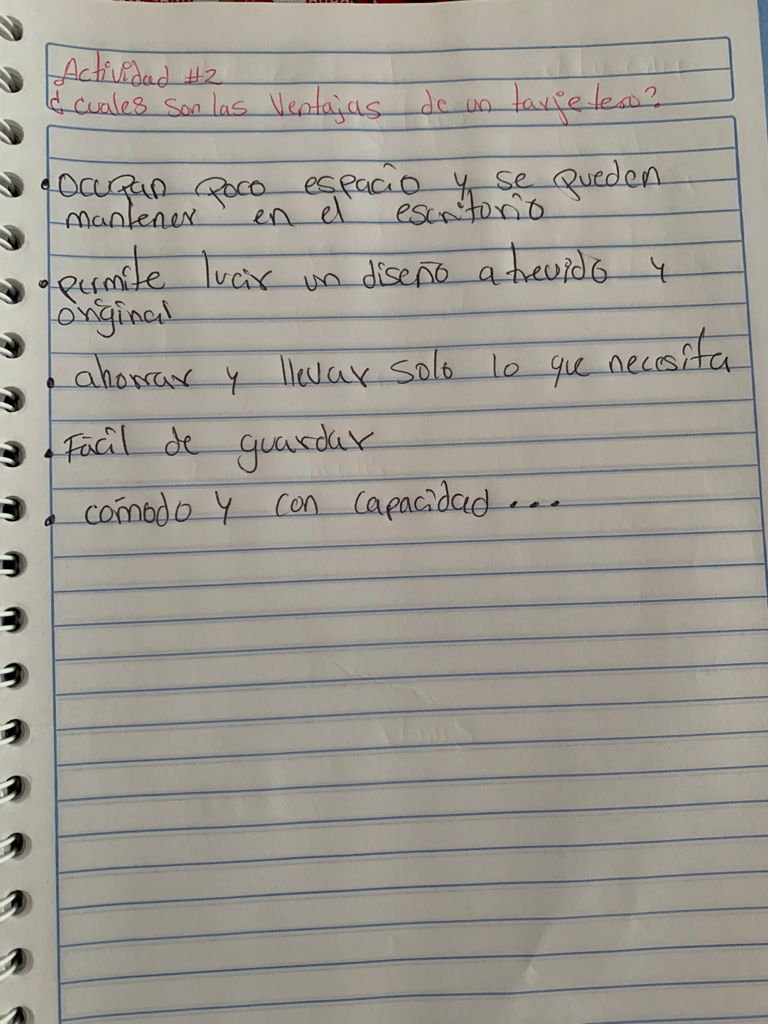 Actividad #2
¿cuales son las Ventajas de un tarjetero?
• Ocupan poco espacio y se pueden
mantener en el escritorio
• permite lucir un diseño atrevido y
original
• ahorrar y llevar solo lo que necesita
• Fácil de guardar
• cómodo y con capacidad...